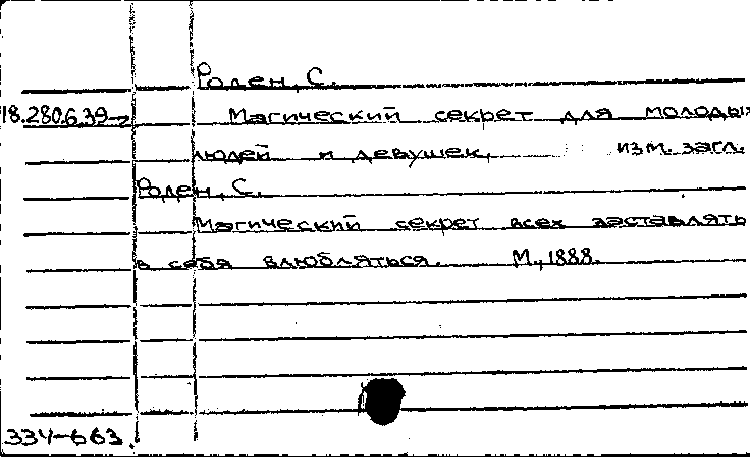 Роден, С.
18.280.6.39-2 Магический секрет для молодых
людей и девушек, изм. загл.
Роден, С.
Магический секрет всех заставлять
в себя влюбляться. М., 1888.
334-663.